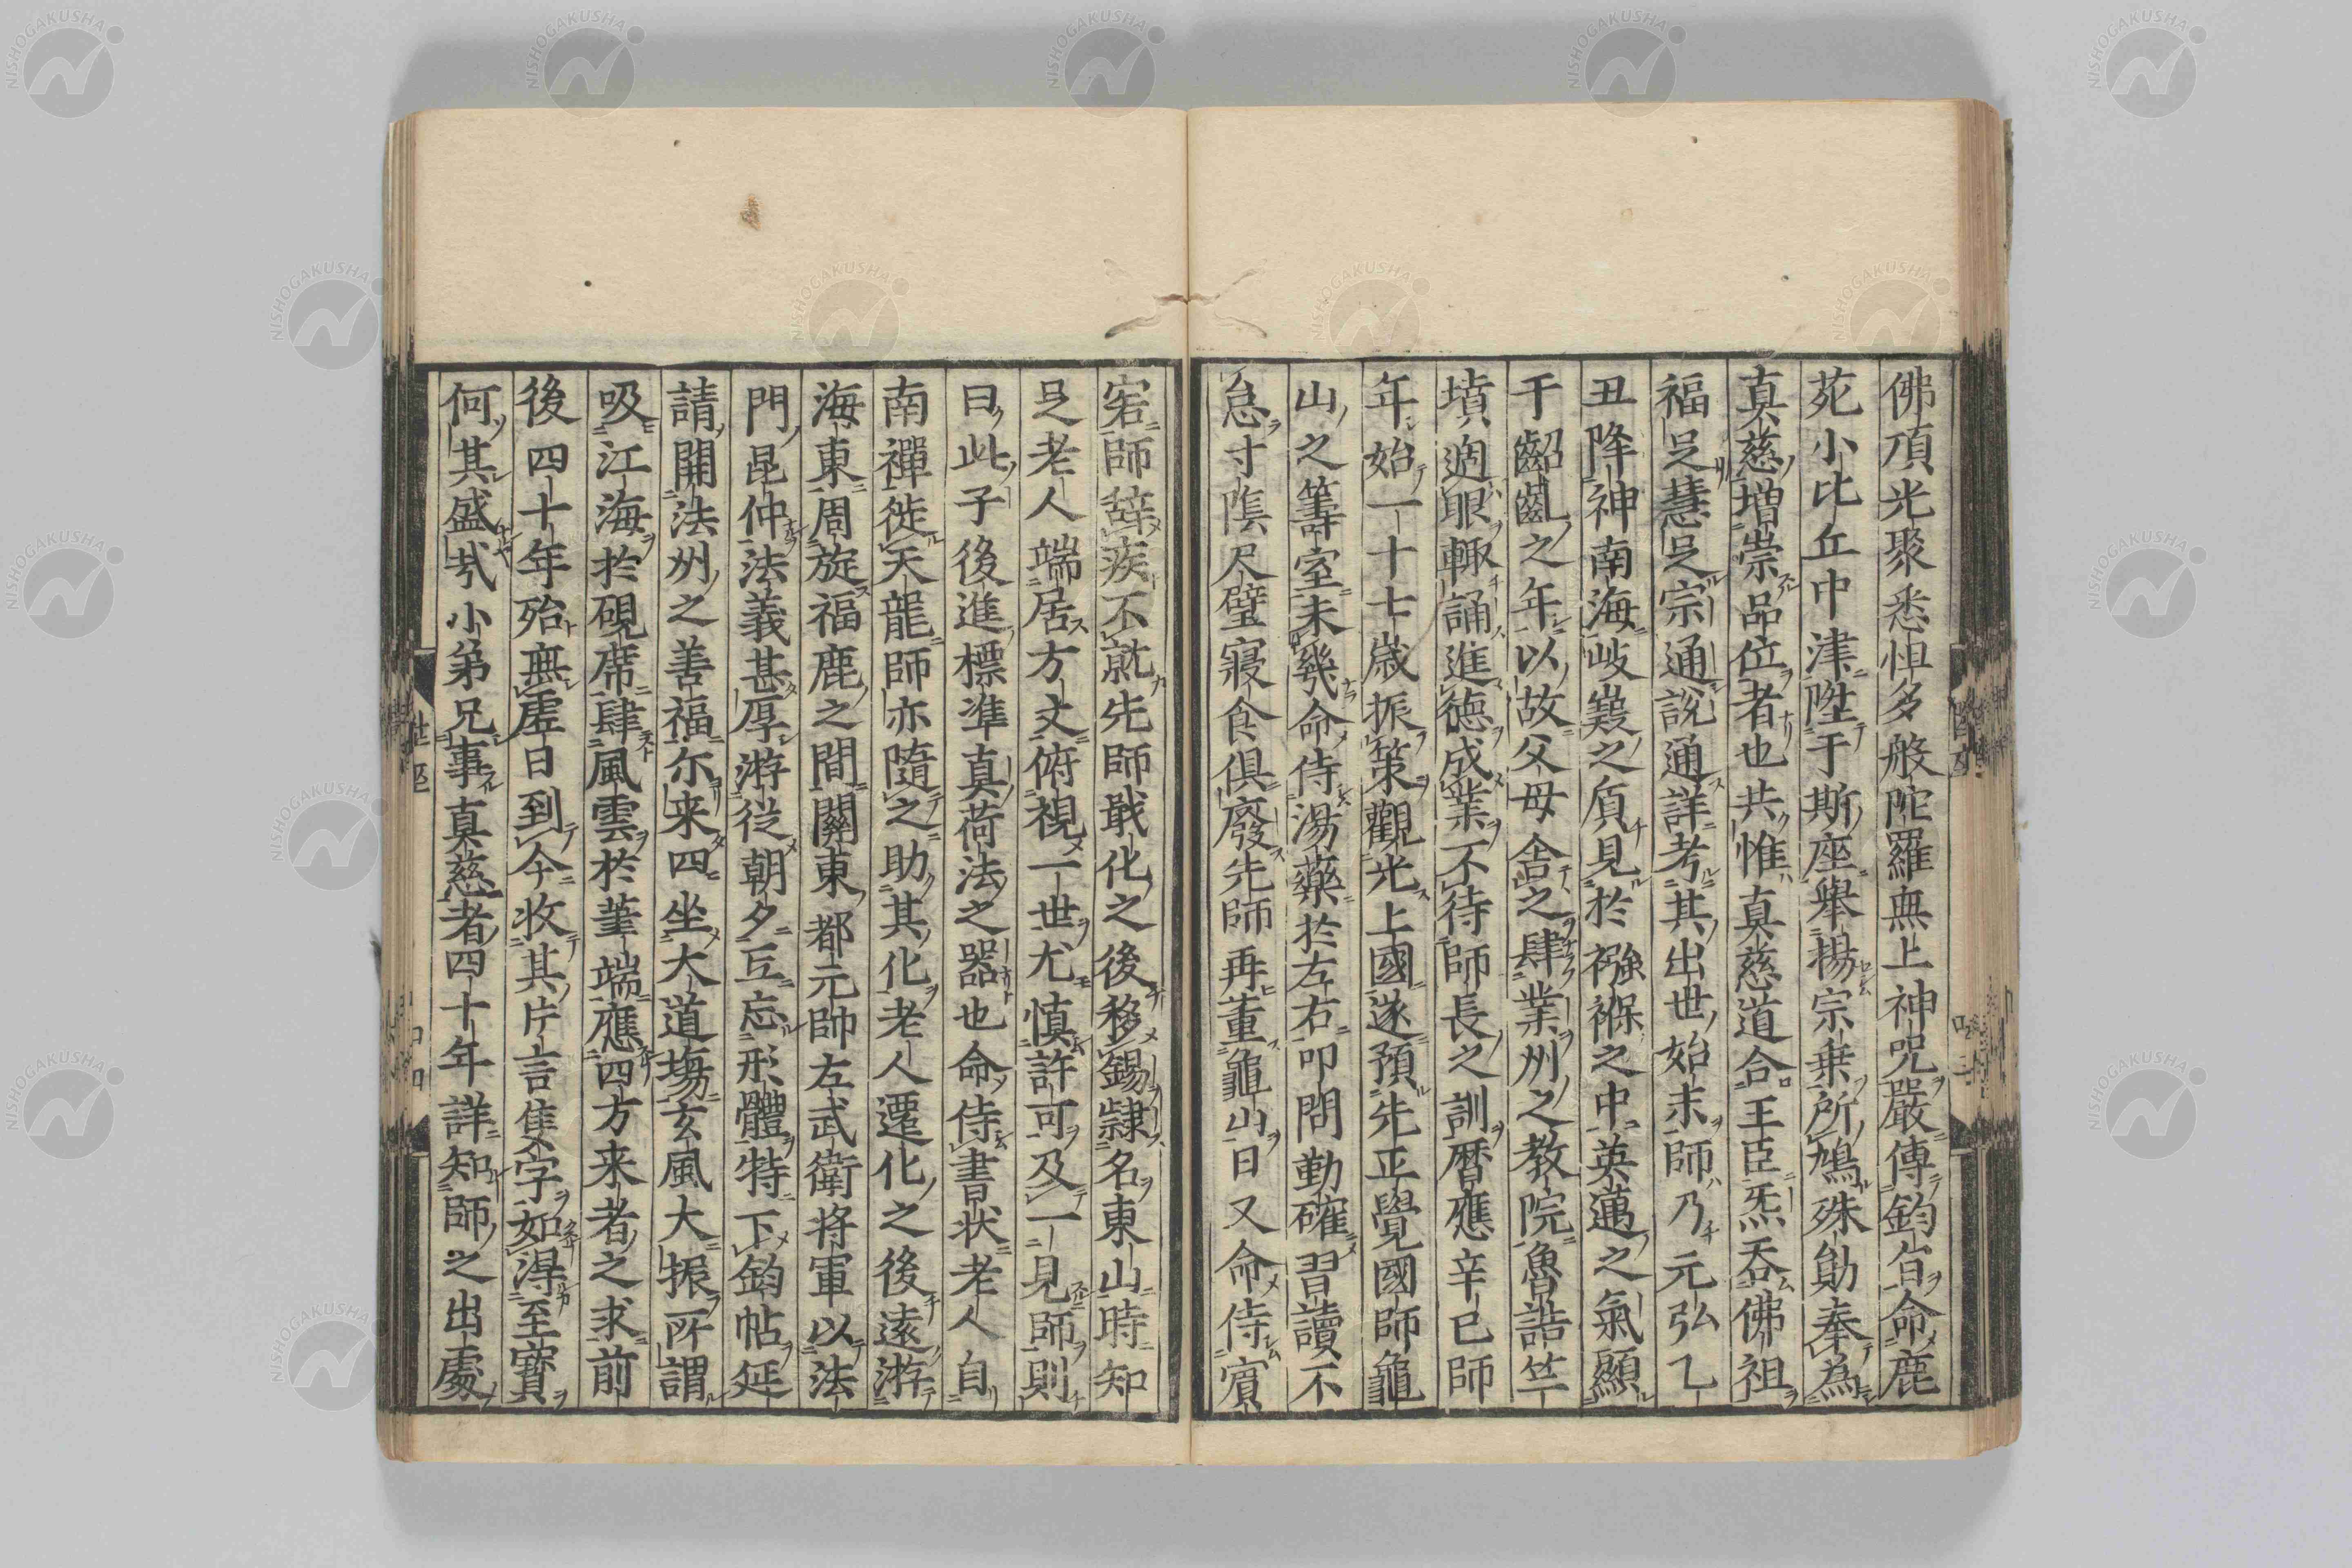 佛頂光聚悉怛多般陀羅無上神呪嚴傳鈞旨命鹿
苑小比丘中津陞于斯座舉揚宗乗所鳩殊勛奉為
真慈増崇品位者也共惟真慈道合王臣炁吞佛祖
福足慧足宗通説通詳考其出世始末師乃元弘乙
丑降神南海岐嶷之質見於襁褓之中英邁之氣顯
于齠齓之年以故父母舎之肆業州之教院魯誥竺
墳過眼輙誦進德成業不待師長之訓曆應辛巳師
年始一十七歳振策觀光上國遂預先正覺國師龜
山之籌室未幾命侍湯藥於左右叩問勤確習讀不
怠寸陰尺璧寢食倶廢先師再董龜山日又命侍賔
宻師辞疾不就先師戢化之後移錫隷名東山時知
足老人端居方丈俯視一世尤慎許可及一見師則
曰此子後進標準真荷法之器也命侍書状老人自
南禪徙天龍師亦隨之助其化老人遷化之後遠游
海東周旋福鹿之間關東都元帥左武衛将軍以法
門昆仲法義甚厚游従朝夕亙忘形體特下鈞帖延
請開法州之善福尓来四坐大道塲玄風大振所謂
吸江海於硯席肆風雲於筆端應四方来者之求前
後四十年殆無虚日到今收其片言隻字如得至寶
何其盛㢤小弟兄事真慈者四十年詳知師之出處